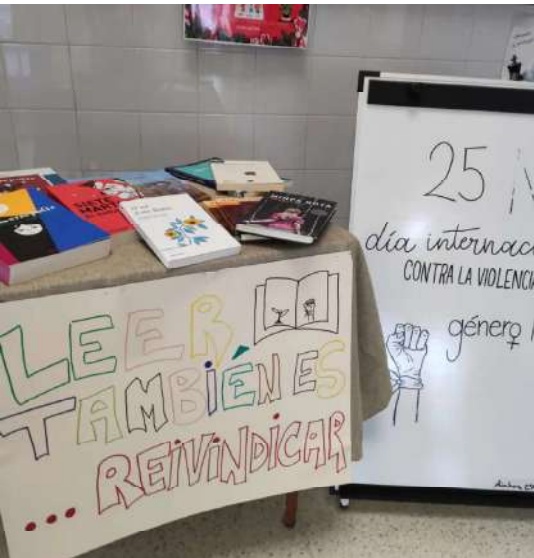 LEER
TAMBIÉN ES
... REIVINDICAR
25 N
día internac
CONTRA LA VIOLENCIA
género
SIETE